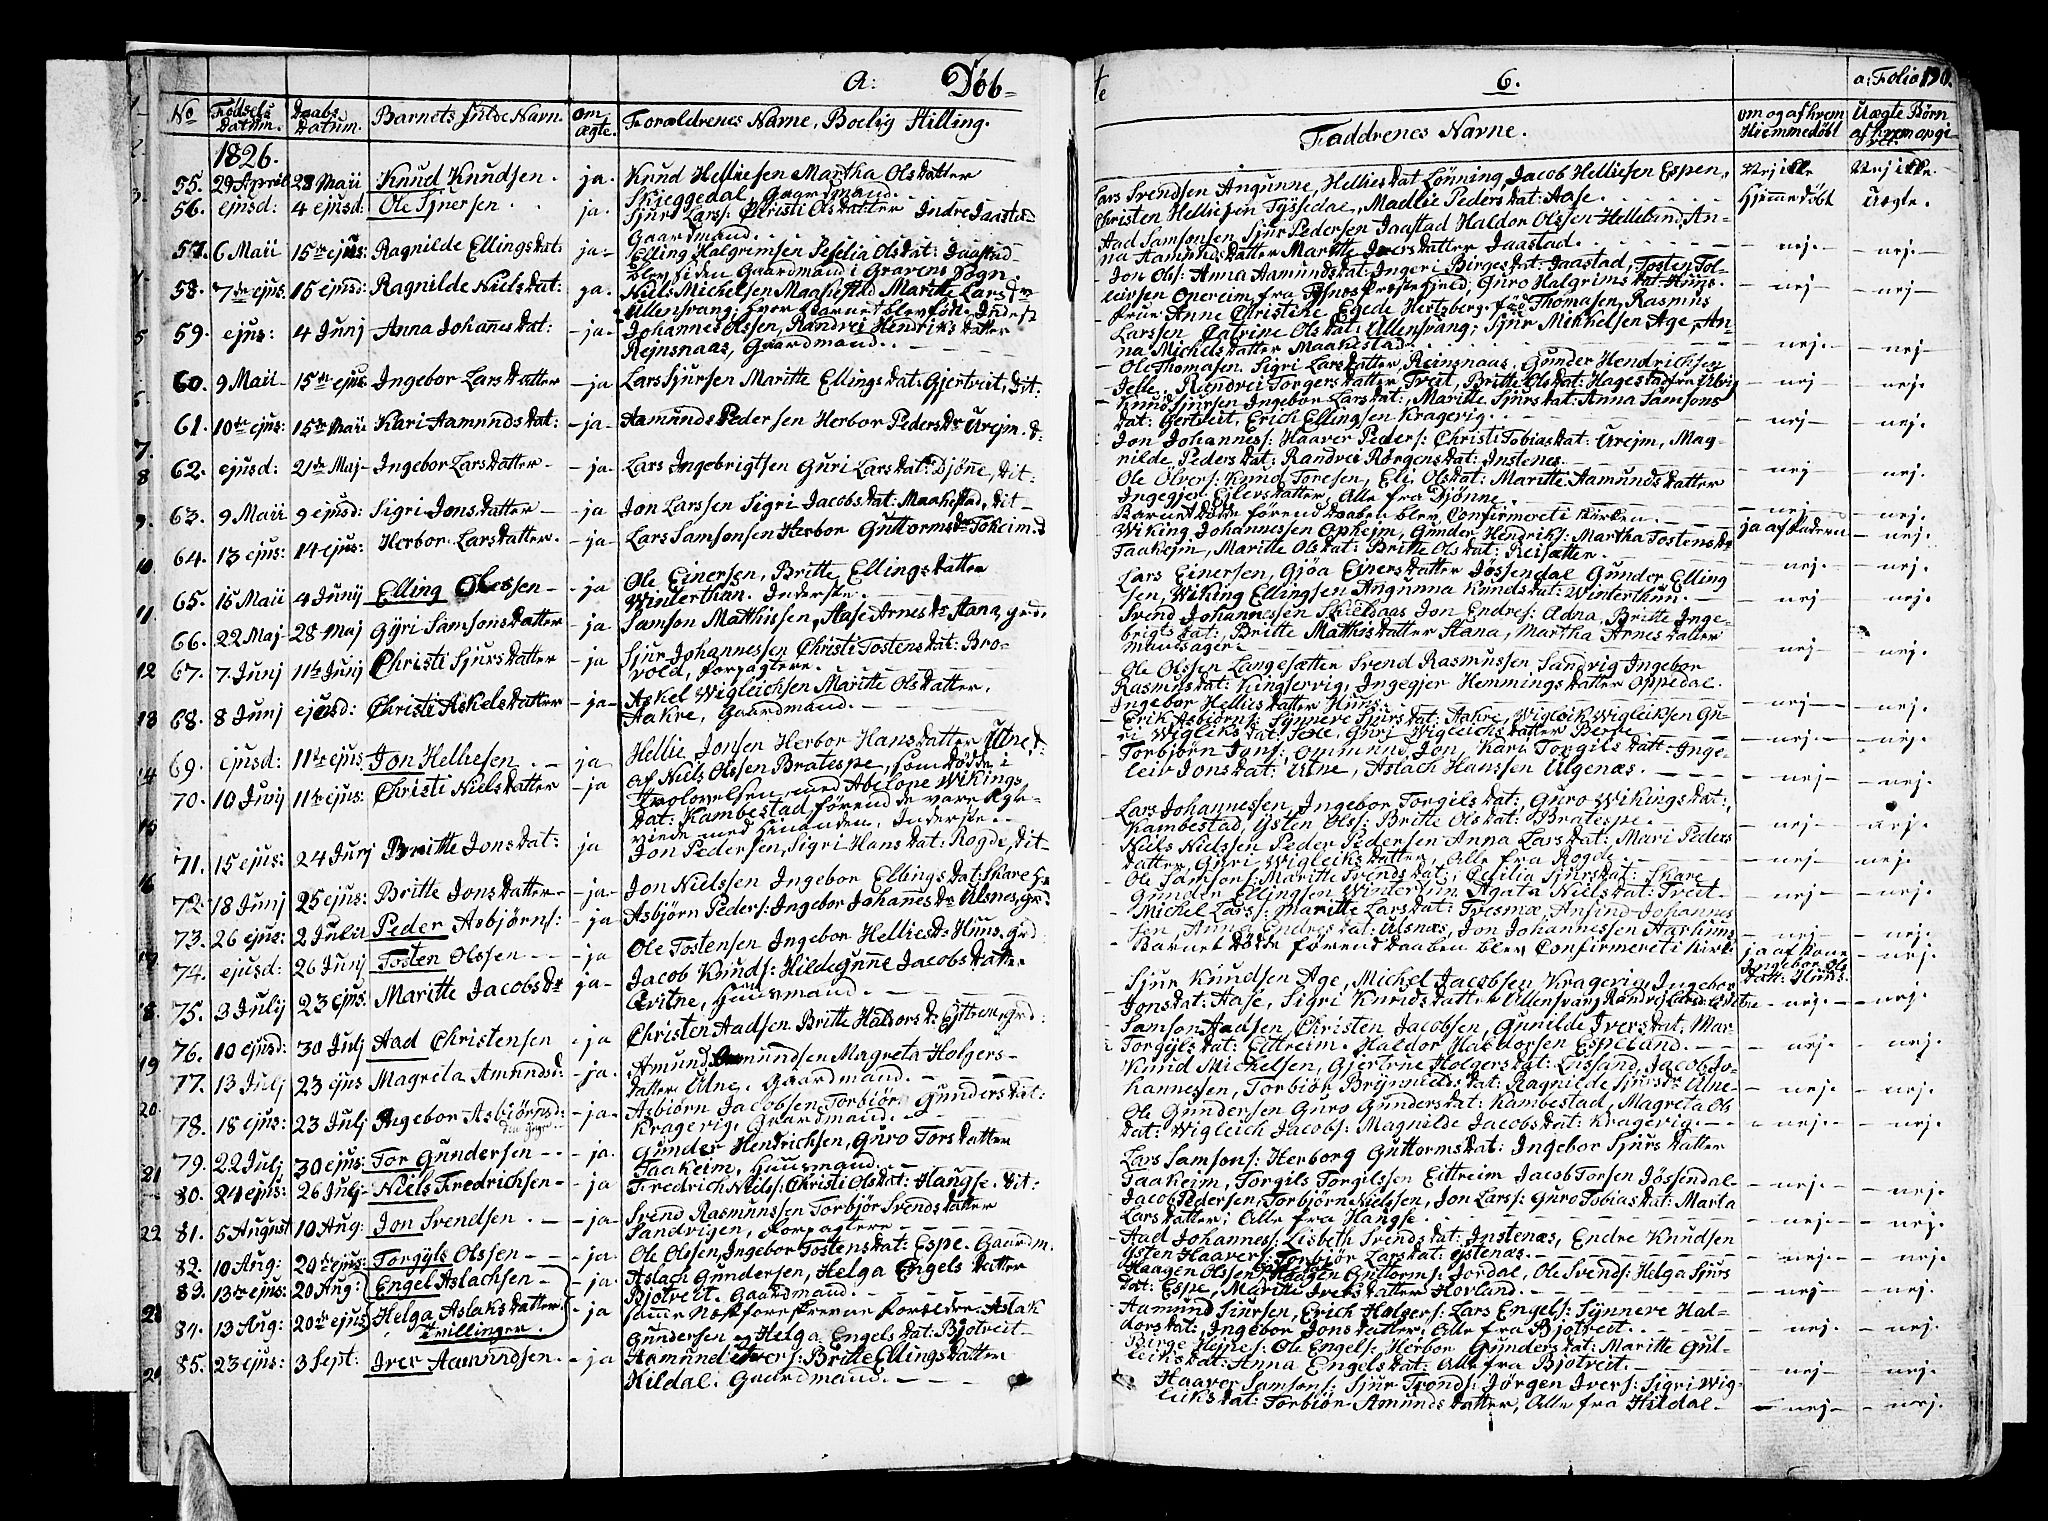 a: Døb=
No
Fødsels Datum.
Daabs Datum.
Barnets fulde Navn.
om ægte.
Forældrenes Navne, Boelig Stilling.
1826.
55. 29 April 28 Maii Knud Knudsen. ja. Knud Helliesen Martha Olsdatter
Skieggedal, Gaardmand.
56. ejusd: 4 ejusd: Ole Sjursen. ja. Sjur Lars: Christi Olsdatter Indre Jaastad
Gaardmand.
57. 6 Maii 15de ejus: Ragnilde Ellingsdat: ja- Elling Halgrimsen Seselia Olsdat: Jaastad
blev siden Gaardmand i Gravens Sogn.
58. 7de ejus. 15 ejusd: Ragnilde Nielsdat: ja. Niels Michelsen Maakestad Maritte Larsdr
Ullensvang; hvor Barnet blev født. Inderst
59. ejus: 4 Junj Anna Johannesdat: -ja- Johannes Olssen, Randrei Hendriksdatter
Rejnsnaas, Gaardmand.
60. 9 Maii 15de ejus: Ingebor Larsdatter -ja Lars Sjursen Maritte Ellingsdat: Gjertveit, dit:
61. 10de ejus: 15de Maii Kari Aamundsdat: -ja- Aamund Pedersen Herbor Pedersdr Urejm. d:
62. ejusd: 21de Maj- Ingebor Larsdatter- -ja- Lars Ingebrigtsen Guri Larsdat: Djöne, dit:
63. 9 Maii 9 ejusd: Sigri Jonsdatter- -ja Jon Larssen Sigri Jacobsdat: Maakestad, dit-
64. 13 ejus: 14 ejus: Herbor Larsdatter. -ja- Lars Samsonsen Herbor Guttormsdr Tokeim. d
65. 15 Maii 4 Junij Elling Olessen- -ja Ole Einersen, Britte Ellingsdatter
Winterthun. Inderste.
66. 22 Maj- 28 Maj Gyri Samsonsdatter -ja- Samson Matthissen, Aase Arnesdr Stana, grd:
67. 7 Junj 11te Junj Christi Sjursdatter -ja Sjur Johannessen Christi Tostensdat: Bro-
vold, forpagtere.
68. 8 Junj ejusd: Christi Askelsdatter -ja- Askel Wigleichsen Maritte Olsdatter.
Aakre, Gaardmand.
69. ejusd: 11te ejus: Jon Helliesen. - ja Hellie Jonsen Herbor Hansdatter Utne d:
70. 10 Junj 11te ejus: Christi Nielsdatter -ja af Niels Olssen Bratespe, som dødde i
Trolovelsen med Abelone Wikings
dat: Kambestad førend de vare Ægte-
viede med hinanden. Inderste.
71. 15 ejus: 24 Junj Britte Jonsdat: ja Jon Pedersen, Sigri Hansdat: Rogde, dit-
72. 18 Junj 25 ejus: Britte Jonsdatter- -ja- Jon Nielssen Ingebor Ellingsdat: Skare H:
73. 26 ejus: 2 Julii Peder Asbjørns: -ja Asbjørn Peders: Ingebor Johanesdr Ulsnes, grd
74. ejusd: 26 Junj Tosten Olssen- - -ja Ole Tostensen Ingebor Helliesdr Huus. grd
75. 3 Julij 23 ejus: Maritte Jacobsdr ja- Jacob Knuds: Hildegunne Jacobsdatter
Qvitne, Huusmand.
76. 10 ejusd: 30 Julj Aad Christensen -ja Christen Aadsen Britte Haldorsdr Eittrem, grd:
77. 13 Julj 23 ejus Magreta Amundsd: -ja. Amund Amundsen Magreta Holgers-
datter Utne. Gaardmand.
78. 18 ejus: 23 Julj Ingebor Asbiörnsd: -ja- Asbiørn Jacobsen Torbiør Gundersdat:
Kragevig, Gaardmand.
79. 22 Julj 30 ejus: Tor Gundersen - - -ja. Gunder Hendrichsen, Guro Torsdatter
Taakeim, Huusmand.
80. 24 ejus: 26 Julj- Niels Fredrichsen- -ja Fredrich Niels: Christi Olsdat: Hangse. dit:
81. 5 August 10 Aug: Jon Svendsen. - -ja- Svend Rasmussen Torbjør Svendsdatter
Sandvigen, Forpagtere
82. 10 Aug: 20de ejus: Torgyls Olssen- - -ja. Ole Olssen, Ingebor Tostensdat: Espe. Gaardm.
83. 13de ejus: 20 Aug: Engel Aslachsen- -ja- Aslach Gundersen, Helga Engels datter
Bjotveit. Gaardmand.
84. 13 Aug: 20de ejus Helga Aslaksdatter -ja samme Næstforeskrevne Forældre. Aslak
Tvillinger. Gundersen og Helga Engelsdat: Bjotveit-
85. 23 ejus: 3 Sept: Iver Aamundsen. -ja Aamund Ivers: Britte Ellingsdatter
Hildal. Gaardmand.
6. a: Folio 190.
Faddrenes Navne.
om og af hvem Hiemmedøbt
Uægte Børn af hvem opgivet.
Lars Svendsen Angunne, Helliesdat Lønning, Jacob Helliesen Espen, Nej ikke Nej ikke.
Christen Helliesen Tyssedal, Madlie Pedersdat: Aase. Hjemmedöbt Uægte.
Aad Samsonsen Sjur Pedersen Jaastad Haldor Olssen Helleland, An-
na Aamundsdatter Maritte Iversdatter Jaastad. - nej- -nej.
Jon Ols: Anna Aamundsdat: Ingeri Birgesdat: Jaastad, Tosten Tol-
leivsen Opereim fra Graven, Guro Halgrimsdat: Huus. - nej -nej
Frue Anne Christine Egede Hertzberg fød Thomasen, Rasmus
Larssen, Catrine Olsdat: Ullensvang; Sjur Mikkelsen Age, An-
na Michelsdatter Maakestad. - nej. -nej
Ole Thomasen. Sigri Larsdatter, Reinsnaas, Gunder Hendricksen
Jelle, Randrei Torgersdatter, Freit, Britte Olsdat: Hagestad fra Ulvig - nej -nej.
Knud Sjursen Ingebor Larsdat:, Maritte Sjursdat: Anna Samsons
dat: Gertveit, Erich Ellingsen Kragevig. - nej- -nej.
Jon Johannes: Haaver Peders: Christi Tobiasdat: Urejm, Mag-
nilde Pedersdat: Randrei Rørgensdat: Instenes. - nej -nej.
Ole Olvers: Knud Toresen, Eli Olsdat: Maritte Aamundsdatter
Ingegjer Ejlersdatter, Alle fra Djønne. - nej- -nej.
Barnet dødde førend Daaben blev Confirmeret i Kirken ja af Faderen -nej.
Wiking Johannessen Opheim, Gunder Hendriks: Martha Tostensdr
Taakejm, Maritte Olsdat: Britte Olsdat: Reisæter. - nej- -nej.
Lars Einersen, Gjøa Einersdatter Jøssendal Gunder Elling
sen, Wiking Ellingsen Angunna Knudsdat: Winterthun. - nej -nej.
Svend Johannessen Skielnaas Jon Endres: Adna, Britte Inge-
brigtsdat:, Britte Matthisdatter Stana, Martha Arnesdatter
Muresager - nej- -nej.
Ole Olssen Langesætter Svend Rasmussen Sandvig Ingebor
Rasmusdat: Kingservig, Ingegjer Hemmingsdatter Oppedal.
Ingebor Helliesdatter Huus. - nej- -nej.
Erik Asbiørns: Synnere Sjursdat: Aakre, Wigleik Wigleiksen Gu-
ri Wigleiksdat: Sexe, Guri Wigleichsdatter Berge - nej- -nej.
Torbjørn Jons: Ommund Jon, Kari Torgils datt- Inge-
leiv Jonsdat: Utne, Aslach Hanssen Ulgenæs. - nej- -nej.
Lars Johannessen, Ingebor Torgilsdat:, Guro Wikingsdat:,
Kambestad, Ysten Ols: Britte Olsdat: Bratespe. - nej- -nej.
Niels Nielssen Peder Pedersen Anna Larsdat: Mari Peders
datter, Guri Wigleiksdatter, Alle fra Rogde. - nej- -nej.
Ole Samsons: Maritte Svendsdat: Cecilia Sjursdat: Skare
Gunder Ellingsen Wintertun, Agata Nielsdat: Freit. - nej- -nej.
Michel Lars: Maritte Larsdat: Tvesmæ, Anfind Johannes
sen, Anna Endresdat: Ulsnæs, Jon Johannessen Aarhuus - nej- -nej.
Barnet Dødde førend Daaben blev Confirmeret i Kirk- ja af Kone Ingebor Olsdatt: Huus. -nej.
Sjur Knudsen Age, Michel Jacobsen, Kragevig, Ingebor
Jonsdat: Aase, Sigri Knudsdatter Ullensvang, Randei Larsdat: - nej- -nej.
Samson Aadsen, Christen Jacobsen, Gunilde Iversdat, Mar-
Torgylsdat: Eittreim. Haldor Haldorsen Espeland. - nej- -nej.
Knud Michelsen, Gjertrue Holgersdat: Lissand, Jacob Jo-
hannessen, Torbiør Brynnildsdat: Ragnilde Sjursdr Utne - nej- -nej.
Ole Gundersen Guro Gundersdat: Kambestad, Magreta Ols
dat: Wigleich Jacobs: Magnilde Jacobsdat: Kragevig. - nej- -nej.
Lars Samsons: Herborg Guttormsdat: Ingebor Sjursdatter
Taakeim, Torgils Torgilssen Eittreim Jacob Torsen Jøssendal - nej- -nej.
Jacob Pedersen, Torbjørn Nielssen, Jon Lars: Guro Tobiasdat: Marta
Larsdatter, Alle fra Hangse. - nej- -nej.
Aad Johannes: Lisbeth Svendsdat: Instenæs, Endre Knudsen
Ysten Haavers: Torbiør Larsdat: Ystenæs. - nej- -nej.
Haagen Olssen, Haagen Guttorms: Jordal, Ole Svends: Helga Sjurs
dat: Espe, Maritte Iversdatter Hovland. - nej- -nej.
Aamund Sjursen, Erich Holgers: Lars Engels: Synnere Hal-
dorsdat:, Ingebor Jonsdatter, Alle fra Bjotveit. - nej- -nej.
Birge Hejnes: Ole Engels: Herbor Gundersdat: Maritte Gul-
leiksdat: Anna Engelsdat: Alle fra Bjotveit. - nej -nej.
Haaver Samsons: Sjur Tronds: Jørgen Ivers: Sigri Wig-
leiksdat: Torbiør Amundsdatter, Alle fra Hildal- - nej- -nej.